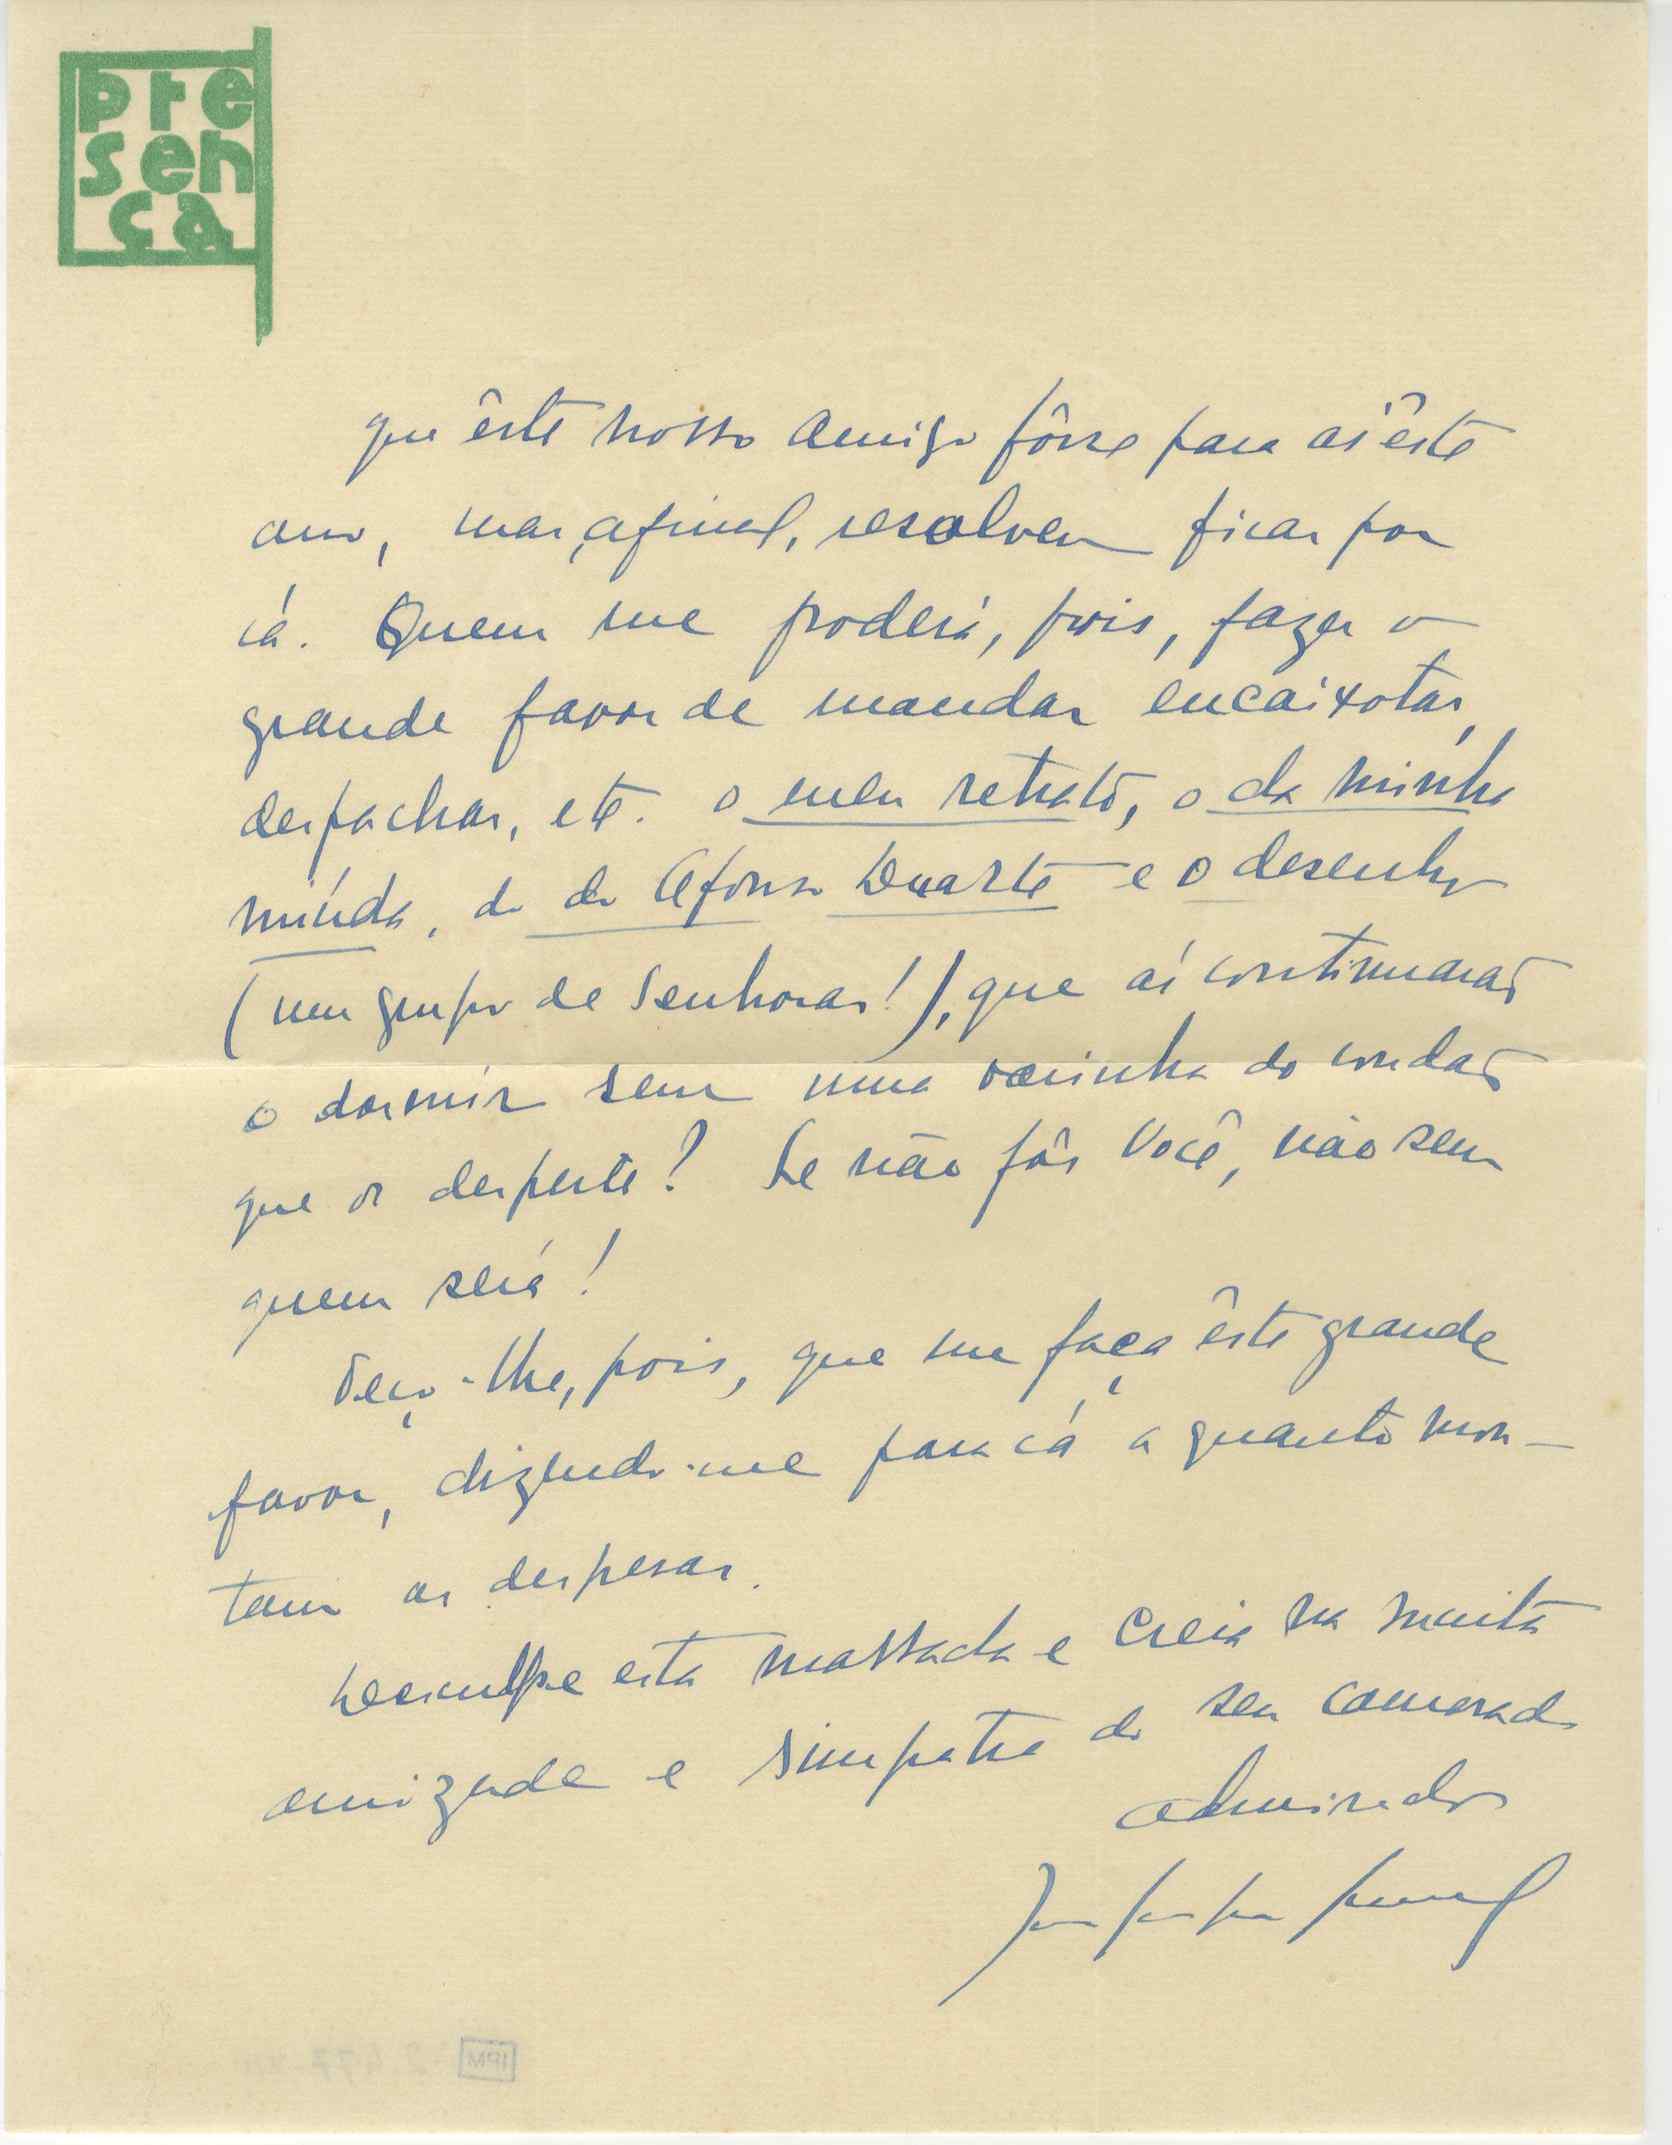 pre
sen
ça
que êste nosso amigo fôsse para aí êste
ano, mas, afinal, resolveu ficar por
cá. Quem me poderá, pois, fazer o
grande favor de mandar encaixotar,
despachar, etc. o meu retrato, o da minha
miúda, do do Afonso Duarte e o desenho
(um grupo de Senhoras!), que aí continuarão
a dormir sem uma varinha do condão
que os desperte? Se não fôr Você, não sem
quem será!
Peço-lhe, pois, que me faça êste grande
favor, dizendo-me para cá a quanto mon-
tam as despesas.
Desculpe esta massada e creia na muita
amizade e simpatia do seu camarada
admirador
IPM